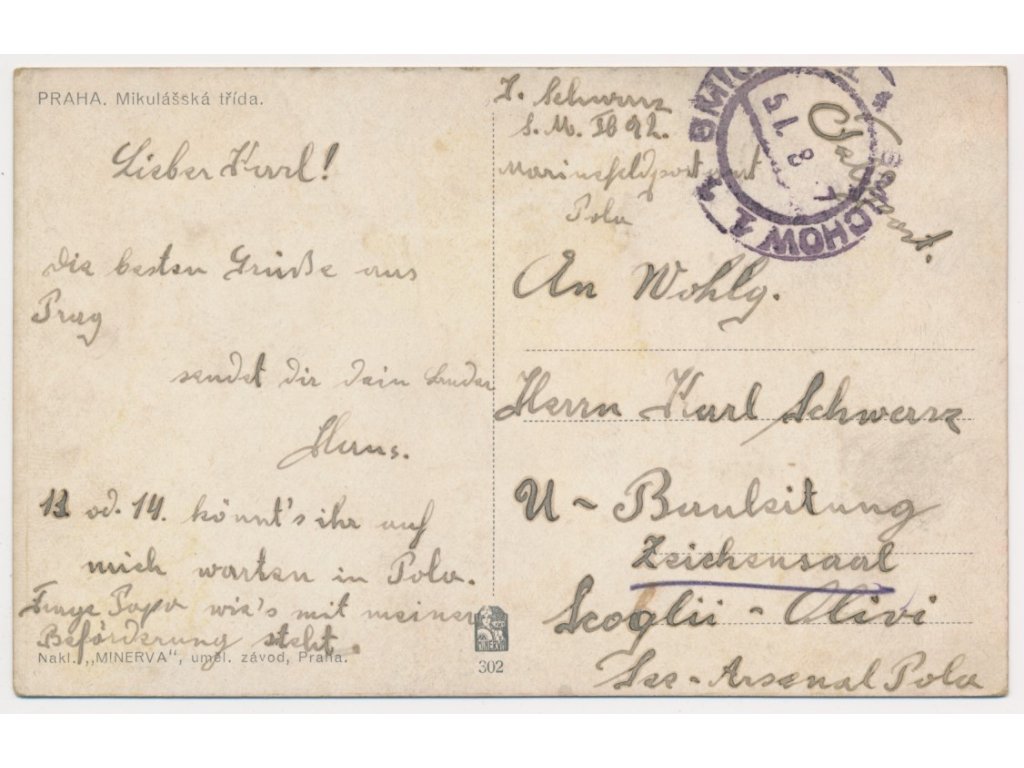 PRAHA. Mikulášská třída.
Lieber Karl!
die besten Grüße aus
Prag
sendet dir dein bruder
Hans.
13 od. 14. könnt's ihr auf
mich warten in Pola.
Frage Papa wie's mit meiner
Beförderung steht.
Nakl. „MINERVA", uměl. závod, Praha.
302
MINERVA
Schwarz
S. M.
Marinefeldpostamt
Pola
SMICHOW 1
An Wohlg.
Herrn Karl Schwarz
U - Bauleitung
Zeichensaal
Scoglii - Olivi
See - Arsenal Pola